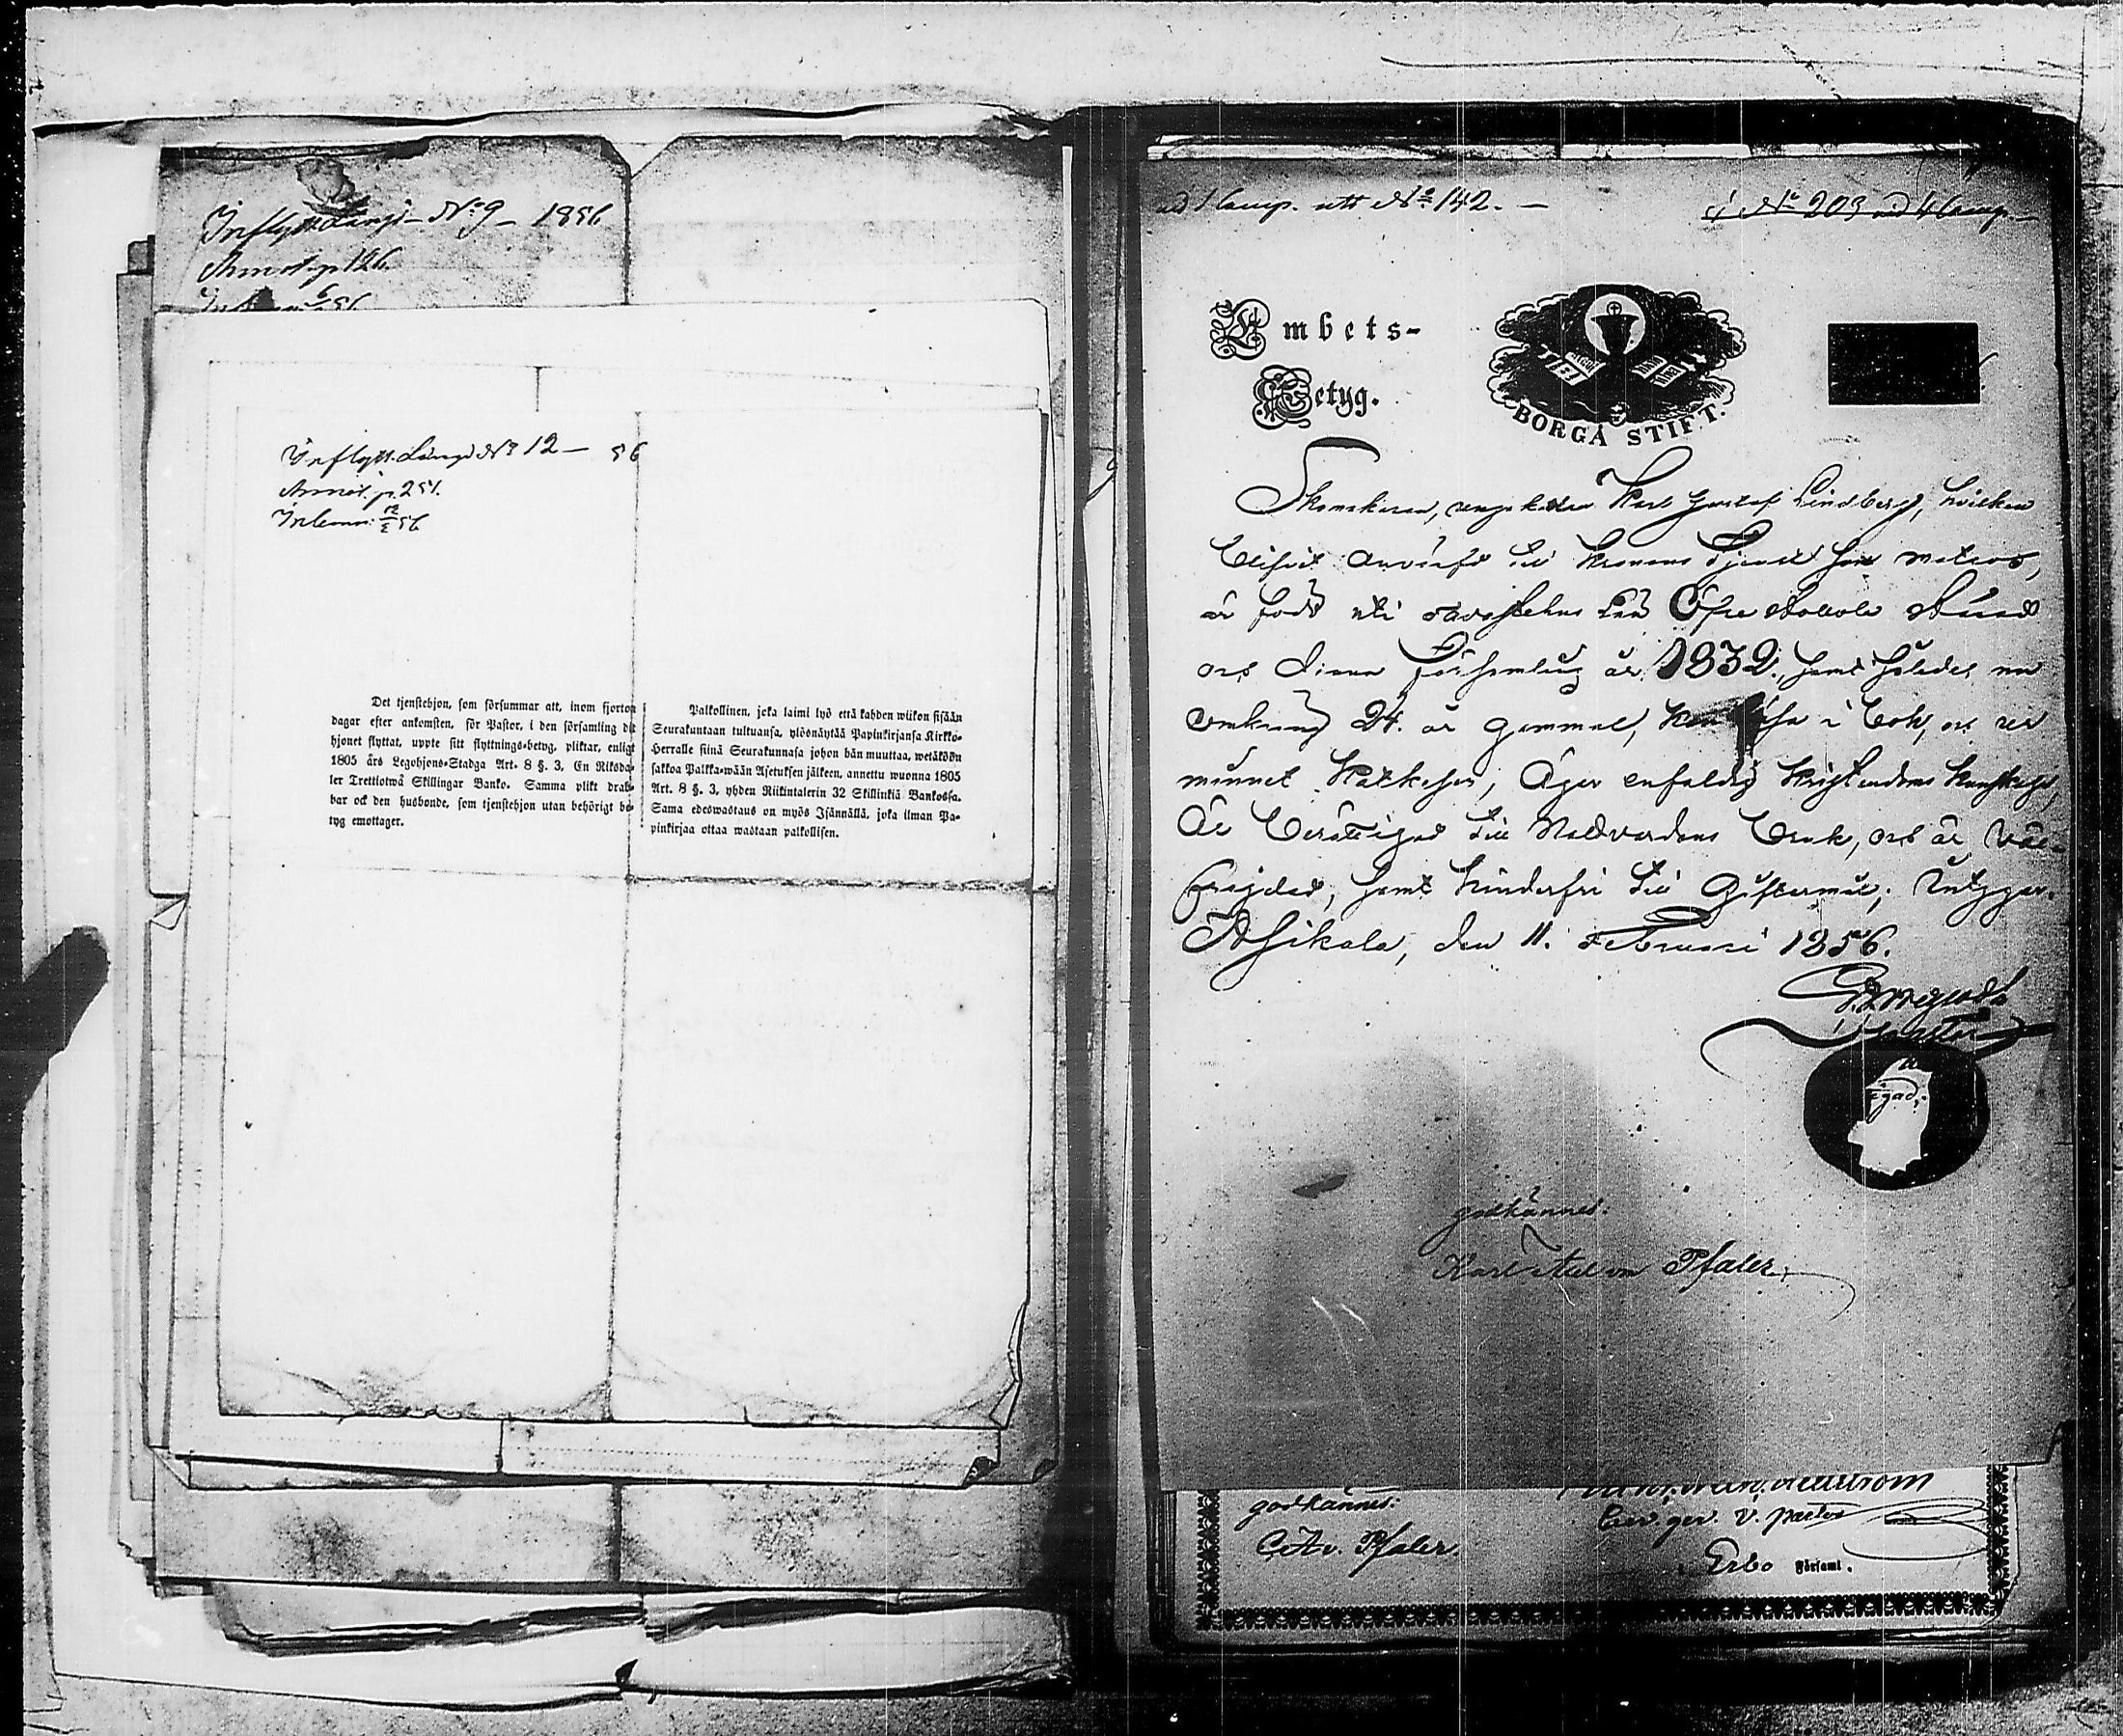 Inflytt. Längd N:o 9 – 1856
Annot. p 126.
Inflytt. Längd N:o 12 – 56
Annot. p. 251.
Inlemn: 12/2 56
Det tjenstehjon, som försummar att, inom fjorton
dagar efter ankomsten, för Pastor, i den församling dit
hjonet flyttat, uppte sitt flyttnings-betyg, pliktar, enligt
1805 års Legohjons-Stadga Art. 8 §. 3, En Riksda-
ler Trettiotwå Skillingar Banko. Samma plikt drab-
bar ock den husbonde, som tjenstehjon utan behörigt be-
tyg emottager.
Palkollinen, joka laimi lyö että kahden wiikon sisään
Seurakuntaan tultuansa, ylösnäytää Papinkirjansa Kirkko-
Herralle siinä Seurakunnasa johon hän muuttaa, wetäköön
sakkoa Palkka-wään Asetuksen jälkeen, annettu wuonna 1805
Art. 8 §. 3, yhden Riikintalerin 32 Skillinkiä Bankossa.
Sama edeswastaus on myös Isännällä, joka ilman Pa-
pinkirjaa ottaa wastaan palkollisen.
ad 1 Comp. utt N:o 142. –
N:o 203 ad 4 Comp. –
Embets-
Betyg.
BORGÅ STIFT.
Skomakaren, ungkarlen Karl Gustaf Lindberg, hvilken
blifvit antagen till Kronans tjenst som matros,
är född uti Tavastehus Län Öfre Hollola Härad
och denna Församling år 1832, samt således nu
omkring 24. år gammal, kan läsa i bok, och ur
minnet Katkesen, Äger enfaldig Kristendoms kunskap,
Är berättigad till Nattvardens bruk, och är väl-
frejdad, samt hinderfri till Giftermål; intygar.
Asikala, den 11. Februari 1856.
Pastor
godkännes:
Karl Axel von Pfaler.
godkännes:
C A v. Pfaler.
v. pastor
Erbo Församl.